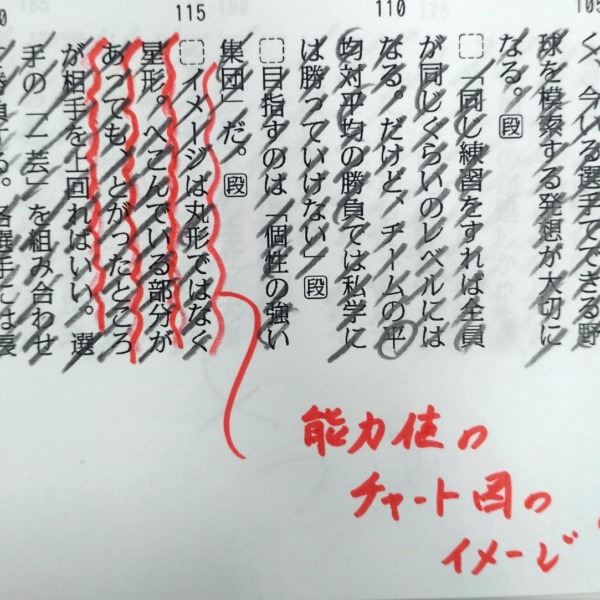 115
110
く、今いる選手でできる野
球を模索する発想が大切に
なる。段
「同じ練習をすれば全員
が同じくらいのレベルには
なる。だけど、チームの平
均対平均の勝負では私学に
は勝っていけない」段
目指すのは「個性の強い
集団」だ。段
イメージは丸形ではなく
星形。へこんでいる部分が
あっても、とがったところ
が相手を上回ればいい。選
手の「一芸」を組み合わせ
能力値の
チャート図の
イメージ